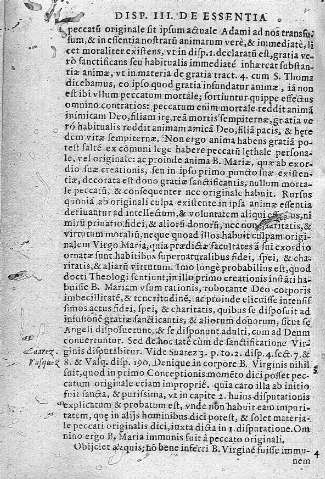 DISP. III. DE ESSENTIA
peccatũ originale sit ipsum actuale Adami ad nos transfu-
sum, & in essentia nostrarũ animarum verè, & immediatè, li
cet moraliter existens, vt in disp. 1. declaratũ est, gratia ve-
rò sanctificans seu habitualis immediatè inhæreat substan-
tiæ animæ, vt in materia de gratia tract. 4. cum S. Thoma
dicebamus, eo ipso quod gratia infundatur animæ, iã non
est ibi vllum peccatum mortale; sortiuntur quippe effectus
omnino contrarios: peccatum enim mortale reddit animã
inimicam Deo, filiam iræ, reã mortis sempiternæ, gratia ve
rò habitualis reddit animam amicã Deo, filiã pacis, & hære
dem vitæ sempiternæ. Non ergo anima habens gratiã po-
test saltẽ ex cõmuni lege habere peccatũ lethale persona-
le, vel originale: ac proinde anima B. Mariæ, quæ ab exor-
dio suæ creationis, seu in ipso primo puncto suæ existen-
tiæ, decorata est dono gratiæ sanctificantis, nullum morta-
le peccatũ, & consequenter nec originale habuit. Rursus
quoniã ab originali culpa existente in ipsa animæ essentia
deriuantur ad intellectum, & voluntatem aliqui
mirũ priuatio fidei, & aliorũ donorũ, nec non charitatis, &
virtutum moraliũ, neque quoad illos habuit culpam origi-
nalem Virgo Maria, quia prædictæ facultates à sui exordio
ornatæ sunt habitibus supernaturalibus fidei, spei, & cha-
ritatis, & aliarũ virtutum. Imo longè probabilius est, quod
docti Theologi sentiunt, in illa primo creationis instãti ha-
buisse B. Mariam vsum rationis, roborante Deo corporis
imbecillitatẽ, & teneritudinẽ, ac proinde elicuisse intensif
simos actus fidei, spei, & charitatis, quibus se disposuit ad
infusionẽ gratiæ sanctificantis, & aliorum donorum, sicut se
Angeli disposuerunt, & se disponunt adulti, cum ad Deum
conuertuntur. Sed de hoc latè cum de sanctificatione Vir-
Vasquez
ginis disputabitur. Vide Suarez 3. p. to. 2. disp. 4. sect. 7, &
8. & Vasq. disp. 190. Denique in corpore B. Virginis nihil
fuit, quod in primo Conceptionis momẽto dici posset pec-
catum originale etiam impropriè. quia caro illa ab initio
fuit sancta, & purissima, vt in capite 2. huius disputationis
explicatum & probatum est, vnde non habuit eam impuri-
tatem, quæ in alijs hominibus dici potest, & solet materia-
le peccati originalis dici, iuxta dicta in 1 disputatione. Om
nino ergo B. Maria immunis fuit à peccato originali.
Obijciet aliquis; nõ bene inferri B. Virginẽ fuisse immu-
4
nem